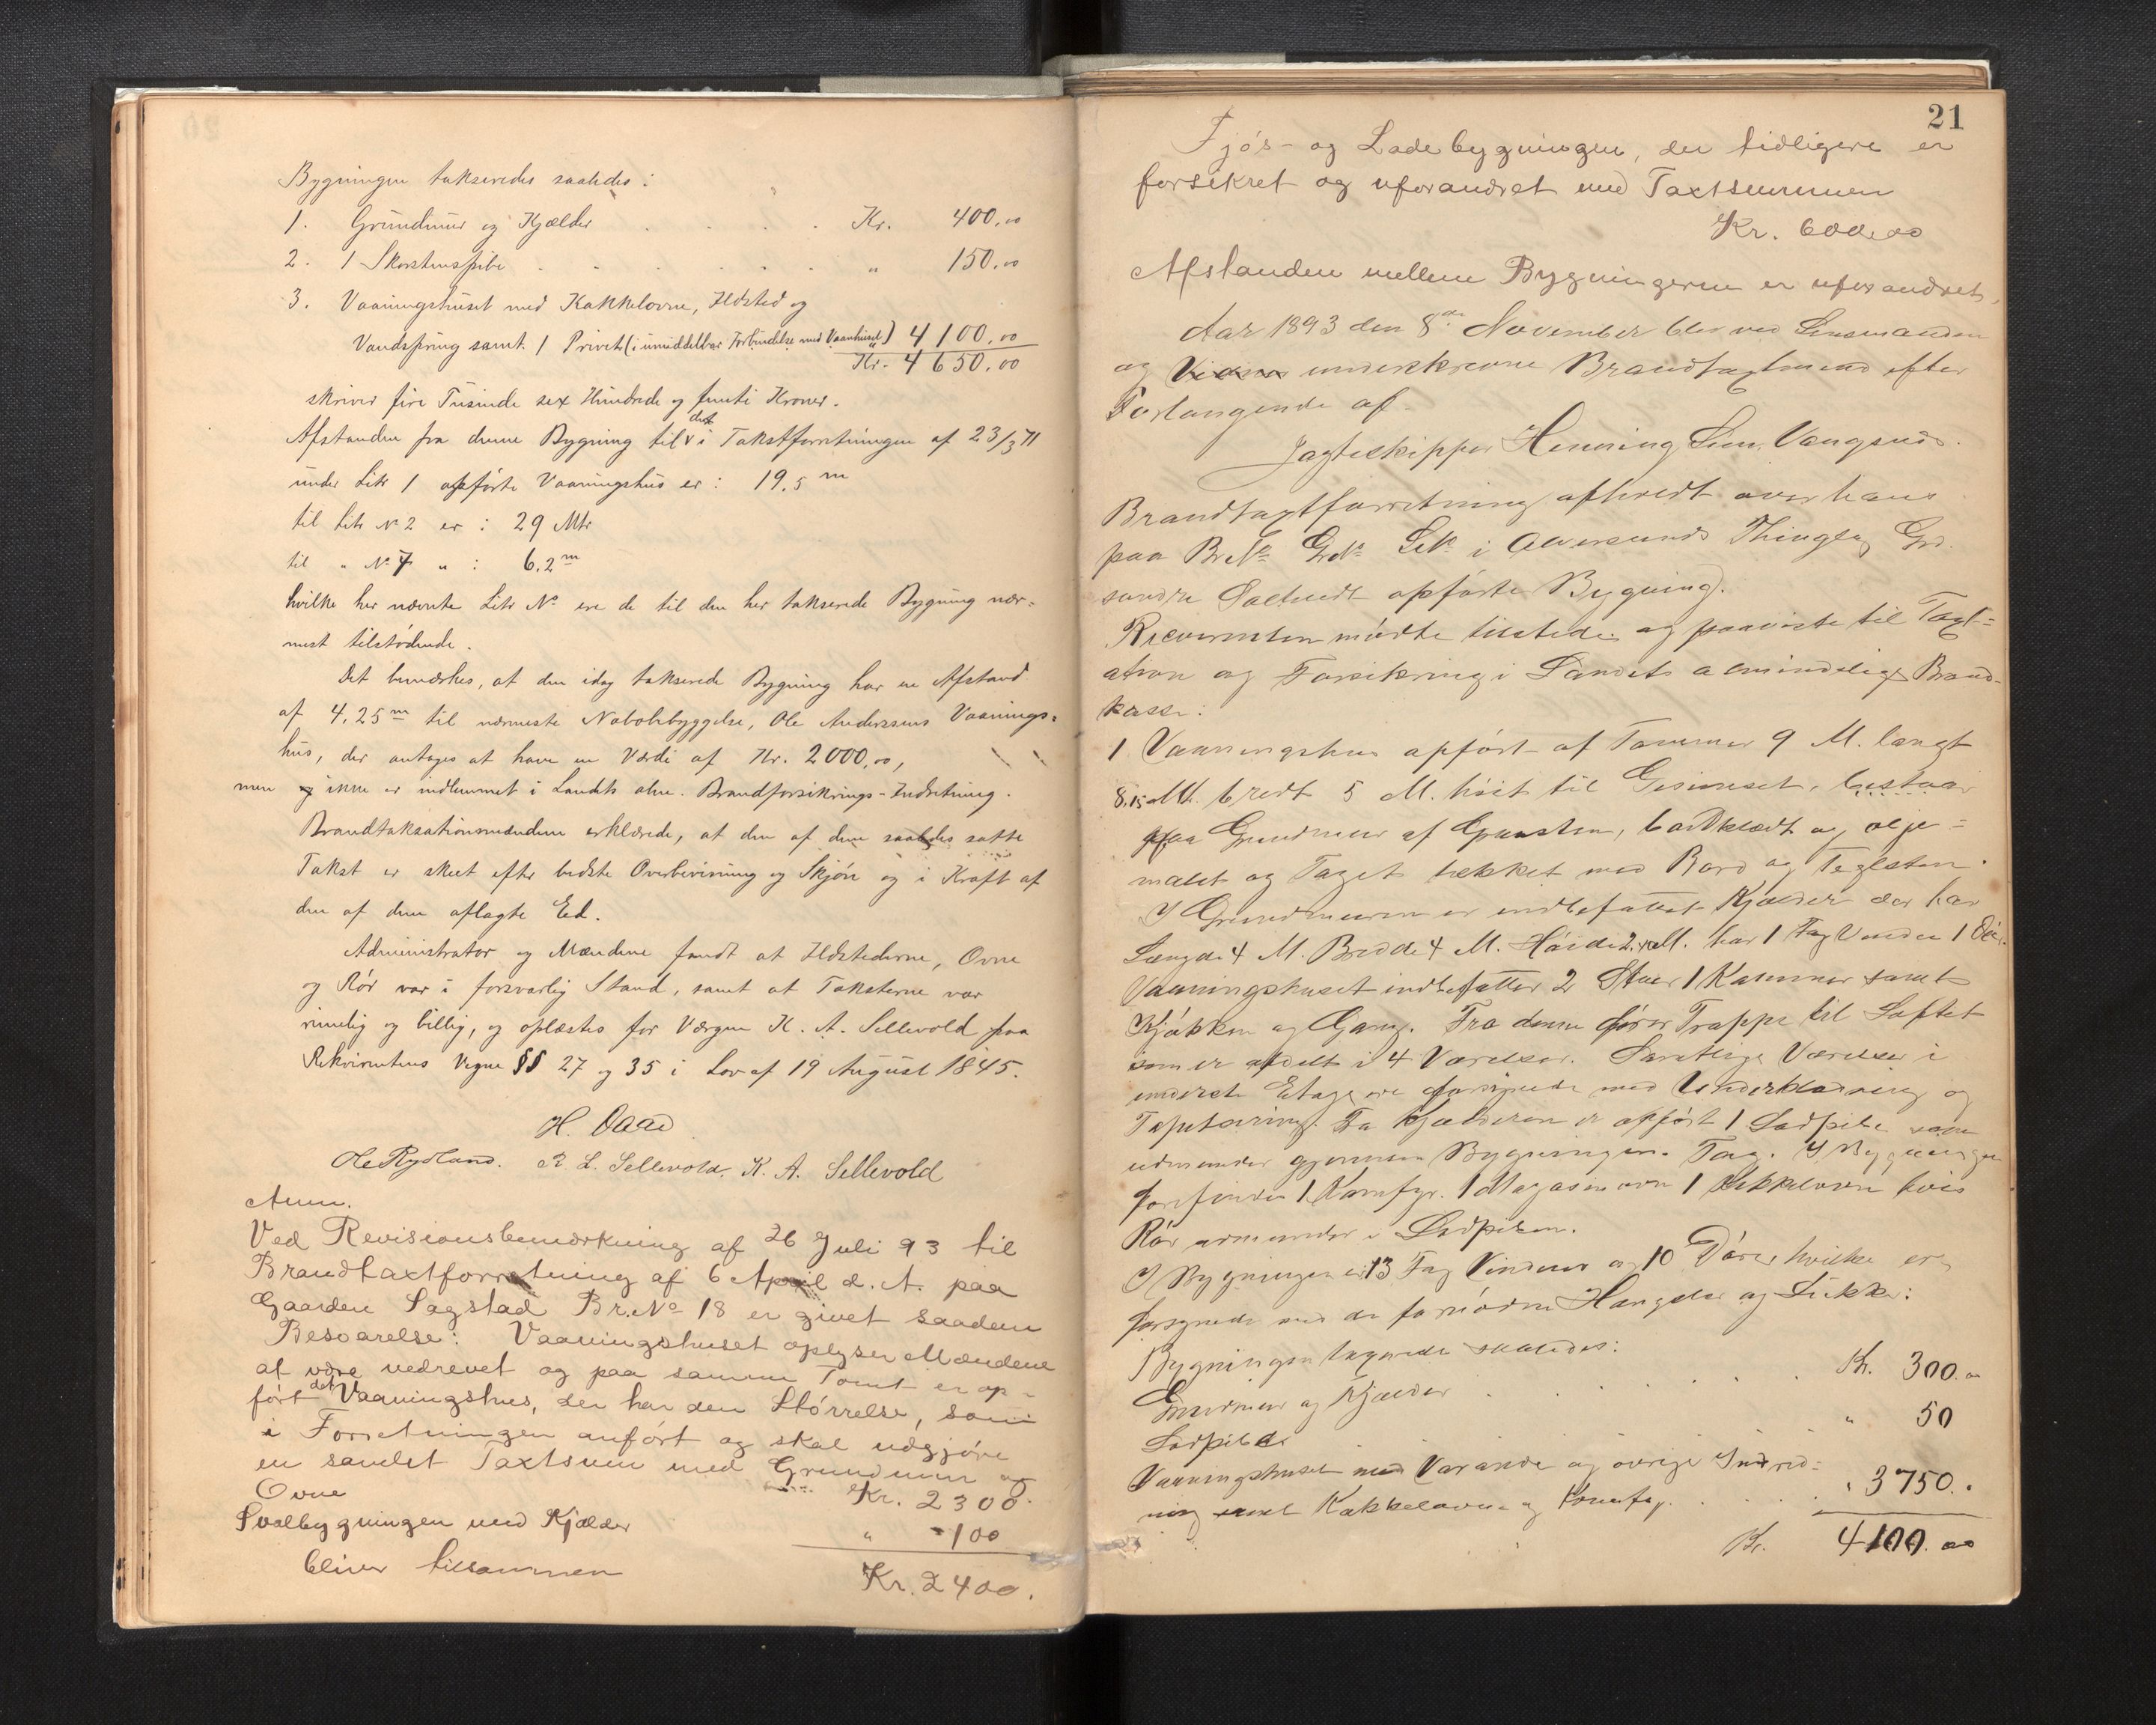 Bygningen takseredes saaledes:
1. Grundmur og Kjælder . . . . Kr. 400.00
2. 1 Skorstenspibe . . . . . „ 150.00
3. Vaaningshuset med Kakkelovne, Ildsted og
Vandspring samt 1 Privet (i umiddelbar Forbindelse med Vaanhuset) „ 4100.00
Kr. 4650.00
skriver fire Tusinde sex Hundrede og femti Kroner.
Afstanden fra denne Bygning til det i Takstforretningen af 23/3 71
under Litr 1 opførte Vaaningshus er: 19.5 m
til Litr No 2 er: 29 Mtr
til „ No 7 „ : 6.2 m
hvilke her nævnte Litr No ere de til den her takserede Bygning nær-
mest tilstødende.
Det bemærkes, at den idag takserede Bygning har en Afstand
af 4.25 m til nærmeste Nabobebyggelse, Ole Anderssens Vaanings-
hus, der antages at have en Værdi af Kr. 2000.00,
men og ikke er indlemmet i Landets alm. Brandforsikrings-Indretning.
Brandtaksationsmændene erklærede, at den af dem saaledes satte
Takst er skeet efter bedste Overbevisning og Skjøn og i Kraft af
den af dem aflagte Ed.
Administrator og Mændene fandt at Ildstederne, Ovne
og Rør var i forsvarlig Stand, samt at Taksterne var
rimelig og billig, og oplæstes for Værgen K. A. Sellevold paa
Rekvirentens Vegne §§ 27 og 35 i Lov af 19 August 1845.
H. Daae
Ole Rydland. R. L. Sellevold. K. A. Sellevold
Anm.
Ved Revisionsbemærkning af 26 Juli 93 til
Brandtaxtforretning af 6 April d. A. paa
Gaarden Sagstad Br. No 18 er givet saadan
Besvarelse: Vaaningshuset oplyser Mændene
at være nedrevet og paa samme Tomt er op-
ført det Vaaningshus, der har den Størrelse, som
i Forretningen anført og skal udgjøre
en samlet Taxtsum med Grundmur og
Ovne Kr. 2300.
Svalbygningen med Kjælder „ - 100
bliver tilsammen Kr. 2400.
21
Fjøs- og Ladebygningen, der tidligere er
forsikret og uforandret med Taxtsummen
Kr. 600.00
Afstanden mellem Bygningerne er uforandret.
Aar 1893 den 8de November blev ved Lensmanden
og underskrevne Brandtaxtmænd efter
Forlangende af
Jagteskipper Henning Sim. Vangsnes.
Brandtaxtforretning afholdt over hans
paa Br No Gr No L No i Alversunds Thinglag Grd.
søndre opførte Bygning.
Rekvirenten mødte tilstede og paaviste til Taxt-
ation og Forsikring i Landets almindelige Brand-
kasse:
1 Vaaningshus opført af Tømmer 9 M. langt
8,15 M. bredt 5 M. høit til Gesimset, bestaar
paa Grundmur af Graasten, bordklædt og olje-
malet og Taget tækket med Bord og Teglsten.
I Grundmuren er indbefattet Kjælder der har
Længde 4 M. Bredde 4 M. Høide 2. M. har 1 Fag Vinduer 1 Dør.
Vaaningshuset indbefatter 2 Stuer 1 Kammer samt
Kjøkken og Gang. Fra denne fører Trappe til Loftet
som er afdelt i 4 Værelser. Samtlige Værelser i
underste Etage ere forsynede med Underklædning og
Tapetsering. Fra Kjælderen er opført 1 Lodpibe som
udmunder gjennem Bygningens Tag. I Bygningen
forefindes 1 Komfyr. 1 Magasinovn 1 Kakkelovn hvis
Rør udmunder i Lodpiben.
I Bygningen er 13 Fag Vinduer og 10 Døre hvilke er
forsynede med de fornødne Hængsler og Lukker:
Bygningen taxeredes saaledes:
Grundmur og Kjælder . . . . . . Kr. 300.00
Lodpibe „ 50
Vaaningshuset med Varande og øvrige Indred-
ning samt Kakkelovne og Komfyr. . . . . „ 3750.
Kr. 4100.00